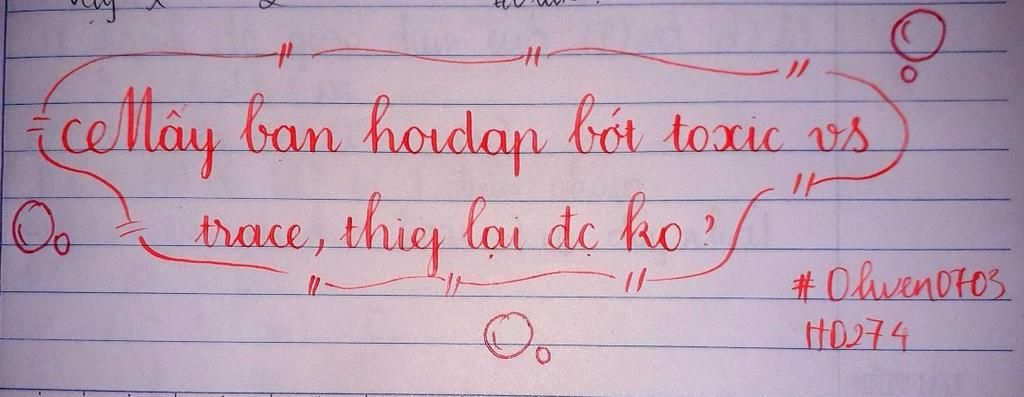 ceMấy bạn hoidap bớt toxic vs
trace, thieg lại đc ko?
#Olwen0703
HD274